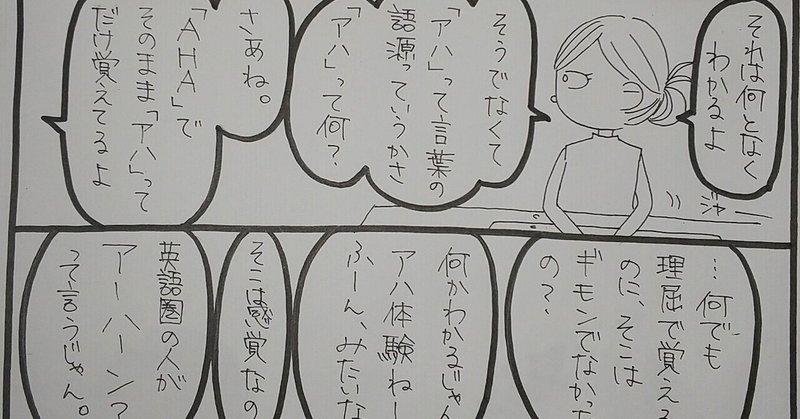 それは何となく
わかるよ
ジャー
そうでなくて
「アハ」って言葉の
語源っていうかさ
「アハ」って何？
さあね。
「AHA」で
そのまま「アハ」って
だけ覚えてるよ
…何でも
理屈で覚える
のに、そこは
ギモンでなかった
の？
何かわかるじゃん
アハ体験ねー
ふーん、みたいな
そこは感覚なの
英語圏の人が
アーハーン？
って言うじゃん。